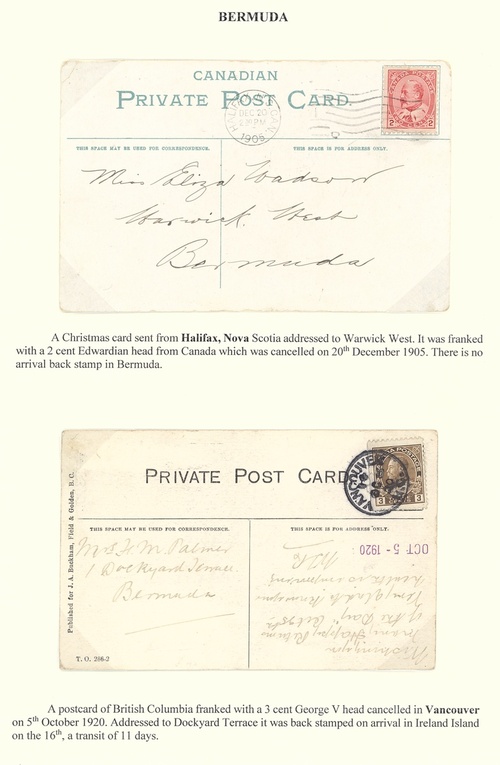 BERMUDA
CANADIAN
PRIVATE POST CARD.
HALIFAX CAN.
DEC 20
PM
1905
CANADA POSTAGE
2 2
THIS SPACE MAY BE USED FOR CORRESPONDENCE.
THIS SPACE IS FOR ADDRESS ONLY.
Miss Eliza Wadson
Warwick West
Bermuda
A Christmas card sent from Halifax, Nova Scotia addressed to Warwick West. It was franked
with a 2 cent Edwardian head from Canada which was cancelled on 20th December 1905. There is no
arrival back stamp in Bermuda.
PRIVATE POST CARD
VANCOUVER
3 3
Published for J. A. Beckham, Field & Golden, B. C.
THIS SPACE MAY BE USED FOR CORRESPONDENCE.
THIS SPACE IS FOR ADDRESS ONLY.
OCT 5 - 1920
Mrs H. M. Palmer
1 Dockyard Terrace.
Bermuda
Wishing you
Many Happy Returns
of the Day
T. O. 286-2
A postcard of British Columbia franked with a 3 cent George V head cancelled in Vancouver
on 5th October 1920. Addressed to Dockyard Terrace it was back stamped on arrival in Ireland Island
on the 16th, a transit of 11 days.